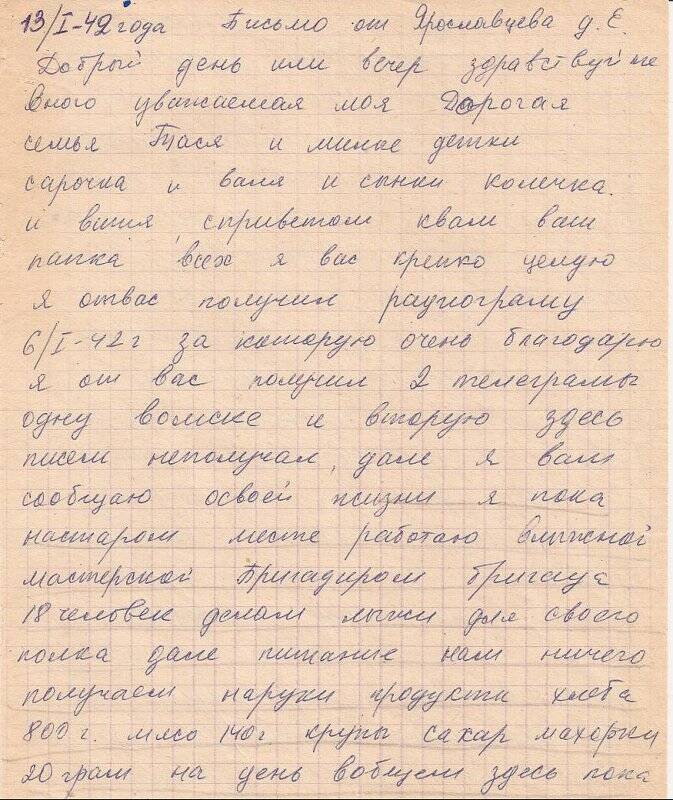 13/I-42 года Письмо от Ярославцева д. Е.
Добрый день или вечер здравствуйте
много уважаемая моя Дорогая
семья Тася и милые детки
сарочка и валя и сынки колечка.
и витя, сприветом квам ваш
папка всех я вас крепко целую
я отвас получил радиограму
6/I-42 г за которую очень благодарю
я от вас получил 2 телеграмы
одну вомске и вторую здесь
писем неполучал, дале я вам
сообщаю освоей жизни я пока
настаром месте работаю влыжной
мастерской Бригадиром бригада
18 человек делам лыжи для своего
полка дале питание нам ничего
получаем наруки продукти хлеба
800 г. мясо 140 г крупы сахар махорки
20 грам на день вобщем здесь пока